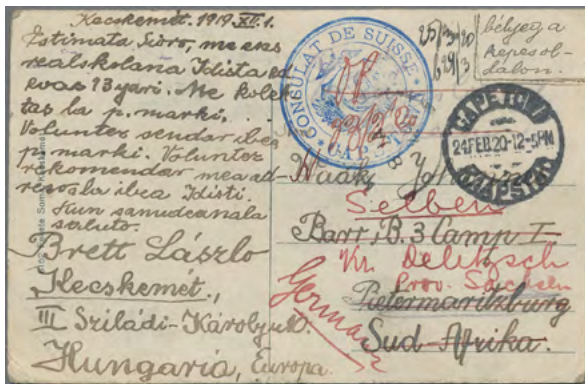 Kecskemét. 1919. XII. 1.
Estimata Sioro, me esas
realskolana Idista ed
evas 13 yari. Me kolek-
tas la p. marki.
Voluntez sendar ibea
p. marki. Voluntez
rekomendar mea ad-
resosla ibea Idisti.
Kun samideanala
saluto.
Brett László
Kecskemét.,
III Sziládi-Károly u. 10.
Hungaria, Europa.
CONSULAT DE SUISSE
CAP
25/3 20
629/3
bélyeg a
képesol-
dalon.
CAPETOWN
24 FEB 20-12-5 PM
KAAPSTAD
Selben
Barr. B. 3 Camp I.
Kr. Delitzsch
Prov. Sachsen
Pietermaritzburg
Germany
Sud-Afrika.